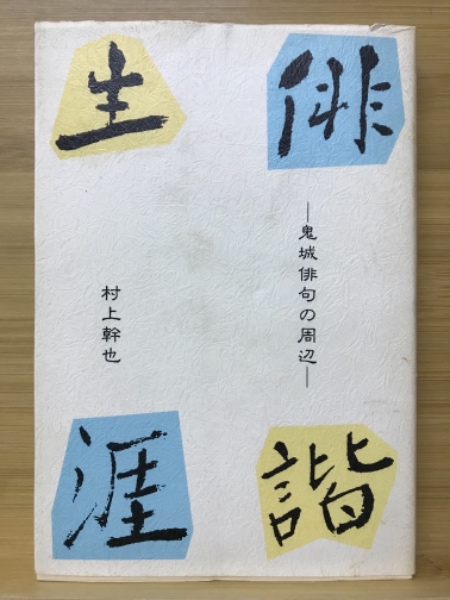 俳諧
生涯
―鬼城俳句の周辺―
村上幹也